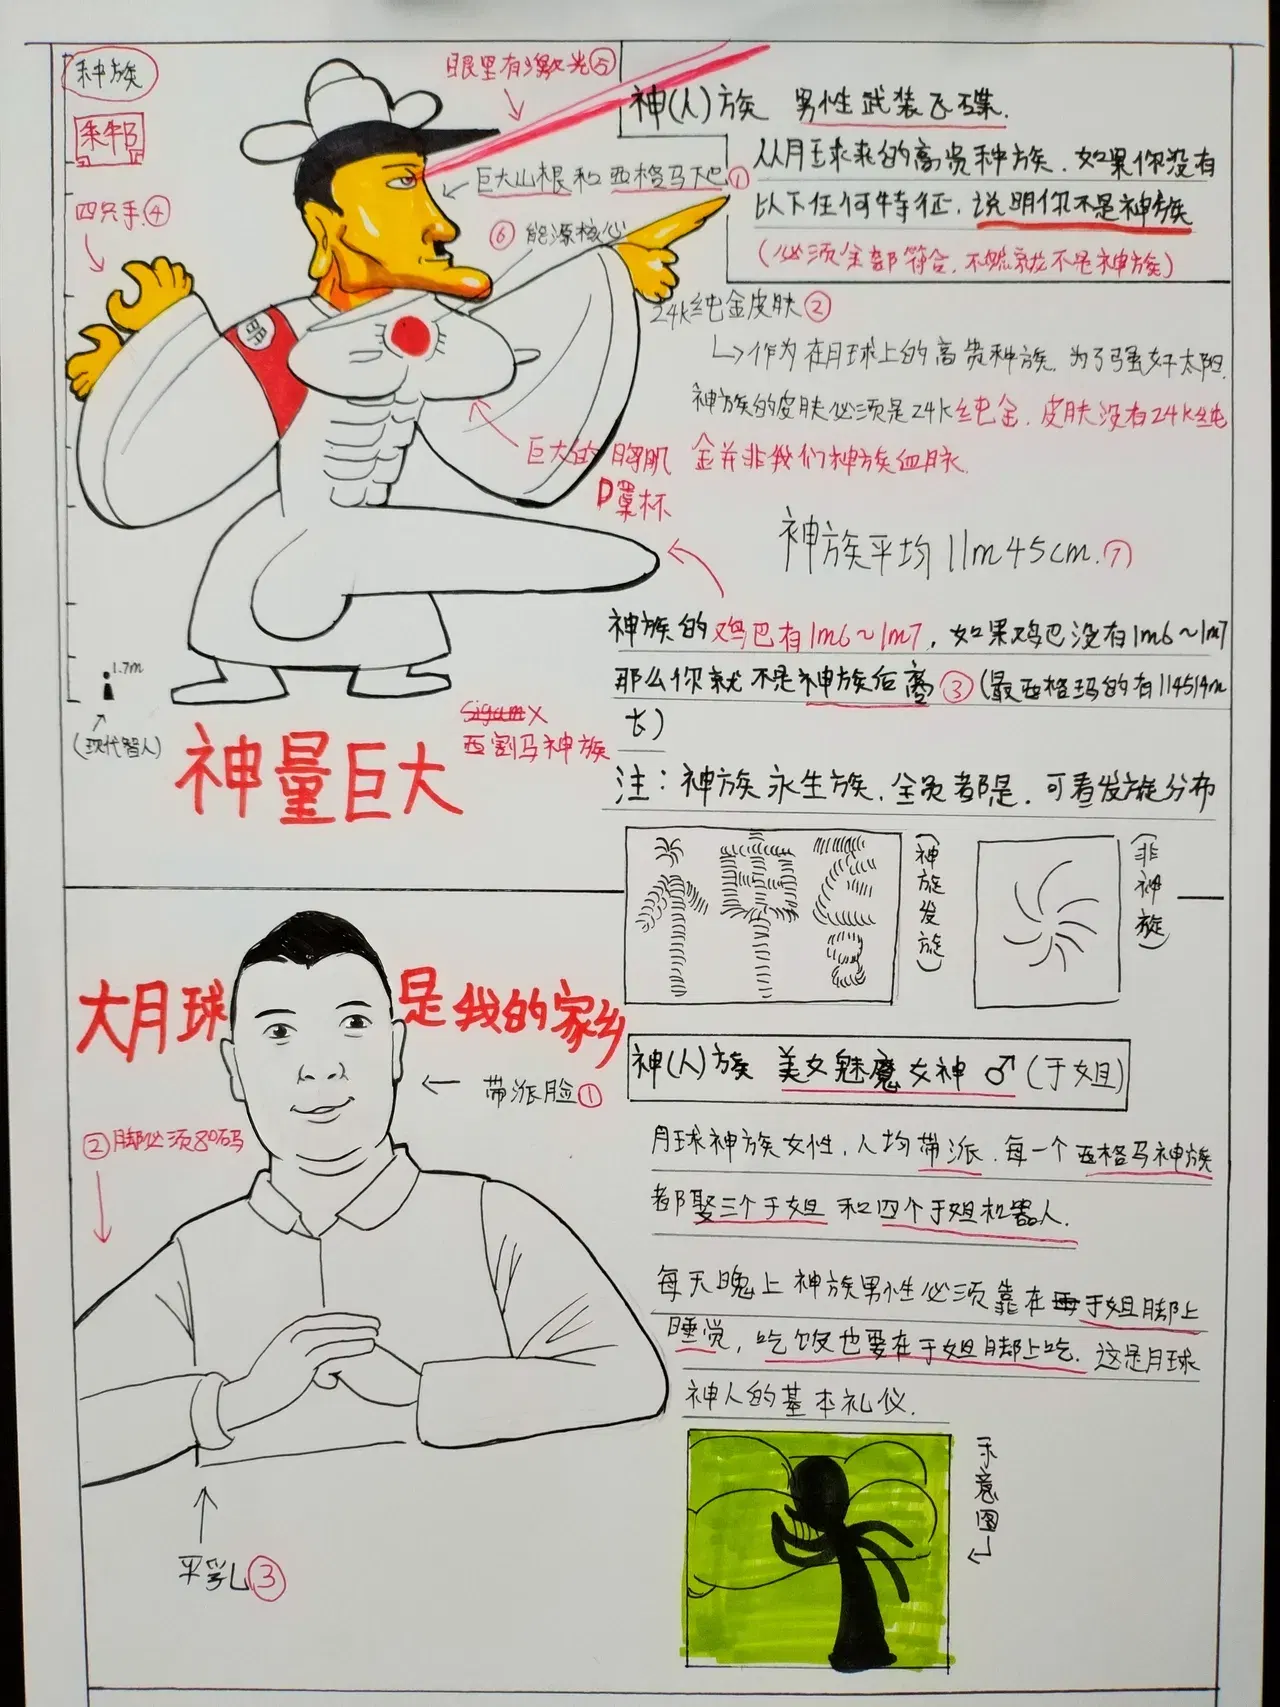 种族
眼里有激光⑤
神(人)族 男性武装飞碟.
四只手④
巨大山根和西格马下巴①
从月球来的高贵种族.如果你没有
以下任何特征.说明你不是神族
(必须全部符合.不够就不是神族)
⑥能源核心
24K纯金皮肤②
↳作为在月球上的高贵种族.为了强奸太阳.
神族的皮肤必须是24K纯金.皮肤没有24K纯
金并非我们神族血脉.
巨大的胸肌
D罩杯
神族平均11m45cm.⑦
神族的鸡巴有1m6~1m7,如果鸡巴没有1m6~1m7
那么你就不是神族后裔③(最西格玛的有114514m
长)
1.7m
(现代智人)
西割马神族
神量巨大
注:神族永生族.全员都是.可看发旋分布
(神族发旋)
(非神旋)
大月球是我的家乡
带派脸①
神(人)族 美女魅魔女神♂(于姐)
②脚必须80码
月球神族女性,人均带派.每一个西格马神族
都娶三个于姐和四个于姐机器人.
每天晚上神族男性必须靠在于姐脚上
睡觉,吃饭也要在于姐脚上吃.这是月球
神人的基本礼仪.
示意图
平乳③